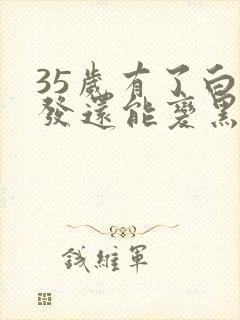 35歲有了白
發還能變黑
鈛維軍